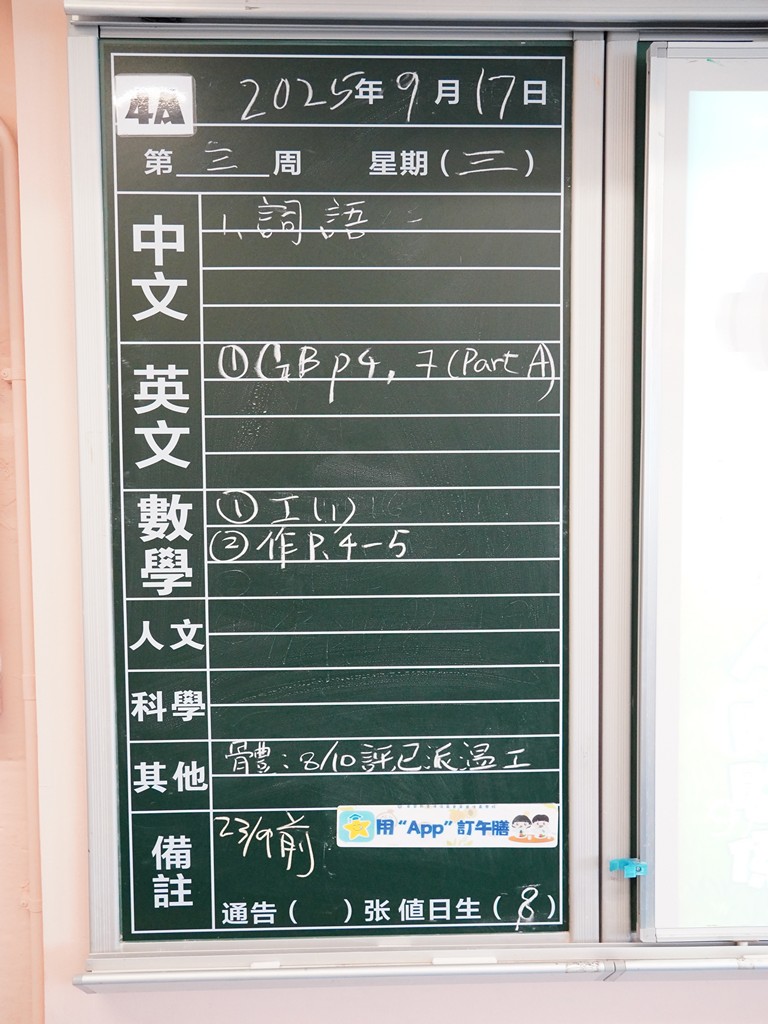 4A
2025年9月17日
第三周 星期(三)
中文
1、詞語
英文
①GB p4, 7 (Part A)
數學
① 工(1)
② 作P.4-5
人文
科學
其他
體：8/10評已派溫工
備註
23/9前
用“App”訂午膳
通告( )张 值日生(8)